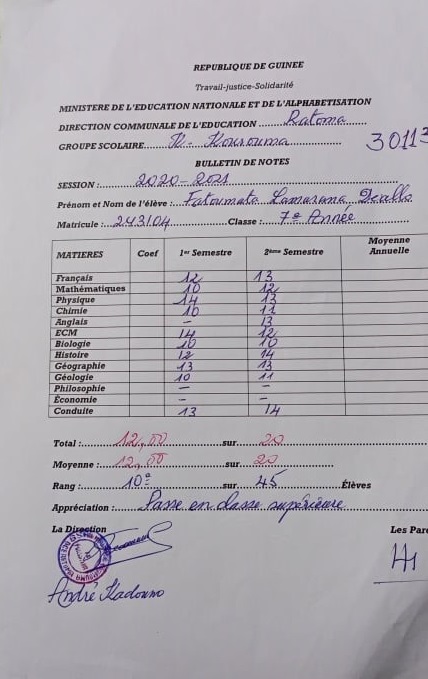 REPUBLIQUE DE GUINEE
Travail-justice-Solidarité
MINISTERE DE L'EDUCATION NATIONALE ET DE L'ALPHABETISATION
DIRECTION COMMUNALE DE L'EDUCATION ........Ratoma........
GROUPE SCOLAIRE.....K - Kourouma........ 30113
BULLETIN DE NOTES
SESSION :........2020-2021........
Prénom et Nom de l'élève :...Fatoumata Lamarana Diallo
Matricule :...243/04........Classe :...7e Année........
MATIERES Coef 1er Semestre 2ème Semestre Moyenne Annuelle
Français 12 13
Mathématiques 10 12
Physique 14 13
Chimie 10 11
Anglais - 13
ECM 14 12
Biologie 10 10
Histoire 12 14
Géographie 13 13
Géologie 10 11
Philosophie - -
Économie - -
Conduite 13 14
Total :........12,00........sur........20........
Moyenne :........12,00........sur........20........
Rang :........10e........sur........45........Élèves
Appréciation :........Passe en classe supérieure
La Direction Les Par
André Kadouno